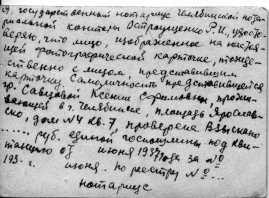 Я, государственный нотариус Челябинской нота-
риальной конторы Остроущенко Р.И., удосто-
веряю, что лицо, изображенное на настоя-
щей фотографической карточке, тожде-
ственно с лицом, представившим
карточку. Самоличность представившейся
гр. Савцовой Ксении Ефимовны, прожи-
вающей в г. Челябинске, площадь Ярослав-
ского, дом №4 кв. 7, проверена. Взыскано
...... руб. единой госпошлины под кви-
танцию от июня 193 года за №
193 г. июня. По реестру № ...
нотариус